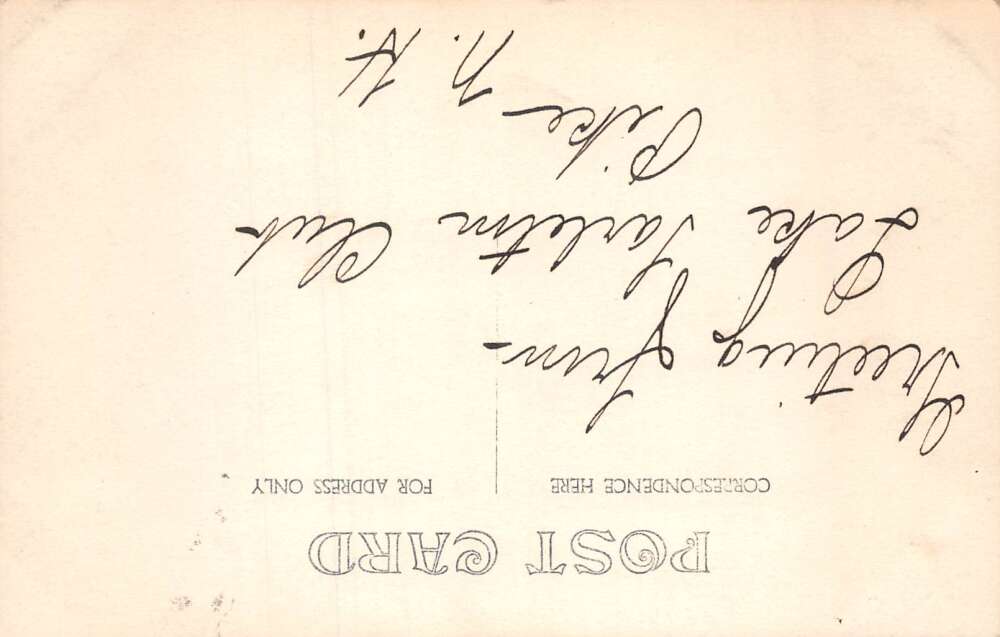 POST CARD
CORRESPONDENCE HERE
FOR ADDRESS ONLY
Greeting from
Lake Tarleton Club
Pike N. H.